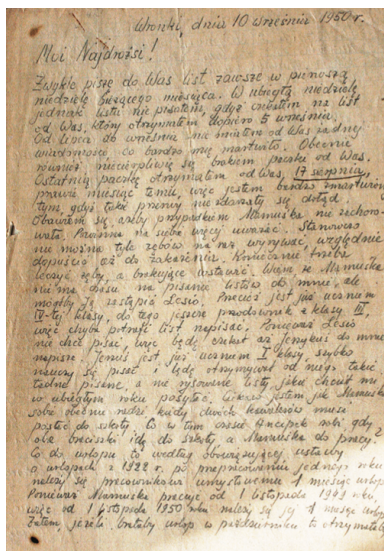 Wronki, dnia 10 września 1950 r.
Moi Najdrożsi!
Zwykle piszę do Was list zawsze w pierwszą
niedzielę bieżącego miesiąca. W ubiegłą niedzielę
jednak listu nie pisałem, gdyż czekałem na list
od Was, który otrzymałem dopiero 5 września.
Od lipca do września nie miałem od Was żadnej
wiadomości co bardzo mię martwiło. Obecnie
również niecierpliwię się brakiem paczki od Was.
Ostatnią paczkę otrzymałem od Was, 17 sierpnia,
prawie miesiąc temu, więc jestem bardzo zmartwio-
tym gdyż takie przerwy nie zdarzały się dotąd.
Obawiam się ażeby przypadkiem Mamuśka nie zachoro-
wała. Powinna na siebie więcej uważać. Stanowczo
nie można tyle zębów na raz wyrywać, względnie
dopuścić aż do zakażenia. Koniecznie trzeba
leczyć zęby, a brakujące wstawić. Wiem że Mamuśka
nie ma czasu na pisanie listów do mnie, ale
mógłby Ją zastąpić Lesio. Przecież jest już uczniem
IV-tej klasy, do tego jeszcze przodownik z klasy III,
więc chyba potrafi list napisać. Ponieważ Lesio
nie chce pisać, więc będę czekał aż Jenykuś do mnie
napisze. Jenuś jest już uczniem I klasy, szybko
nauczy się pisać i będę otrzymywał od niego takie
ładnie pisane, a nie rysowane listy, jakie chciał mi
w ubiegłym roku posyłać. Ciekaw jestem jak Mamuśka
sobie obecnie radzi kiedy dwóch kawalerów musi
posłać do szkoły, to w tym czasie robi gdy
oba braciszki idą do szkoły a Mamuśka do pracy?
Co do urlopu to według obowiązującej ustawy
o urlopach z 1922 r. po przepracowaniu jednego roku
należy się pracownikowi umysłowemu 1 miesiąc urlopu
Ponieważ Mamuśka pracuje od 1 listopada 1949 roku,
więc od 1 listopada 1950 roku należy się jej 1 miesiąc urlopu
Zatem, jeżeli brałaby urlop w październiku to otrzymałaby